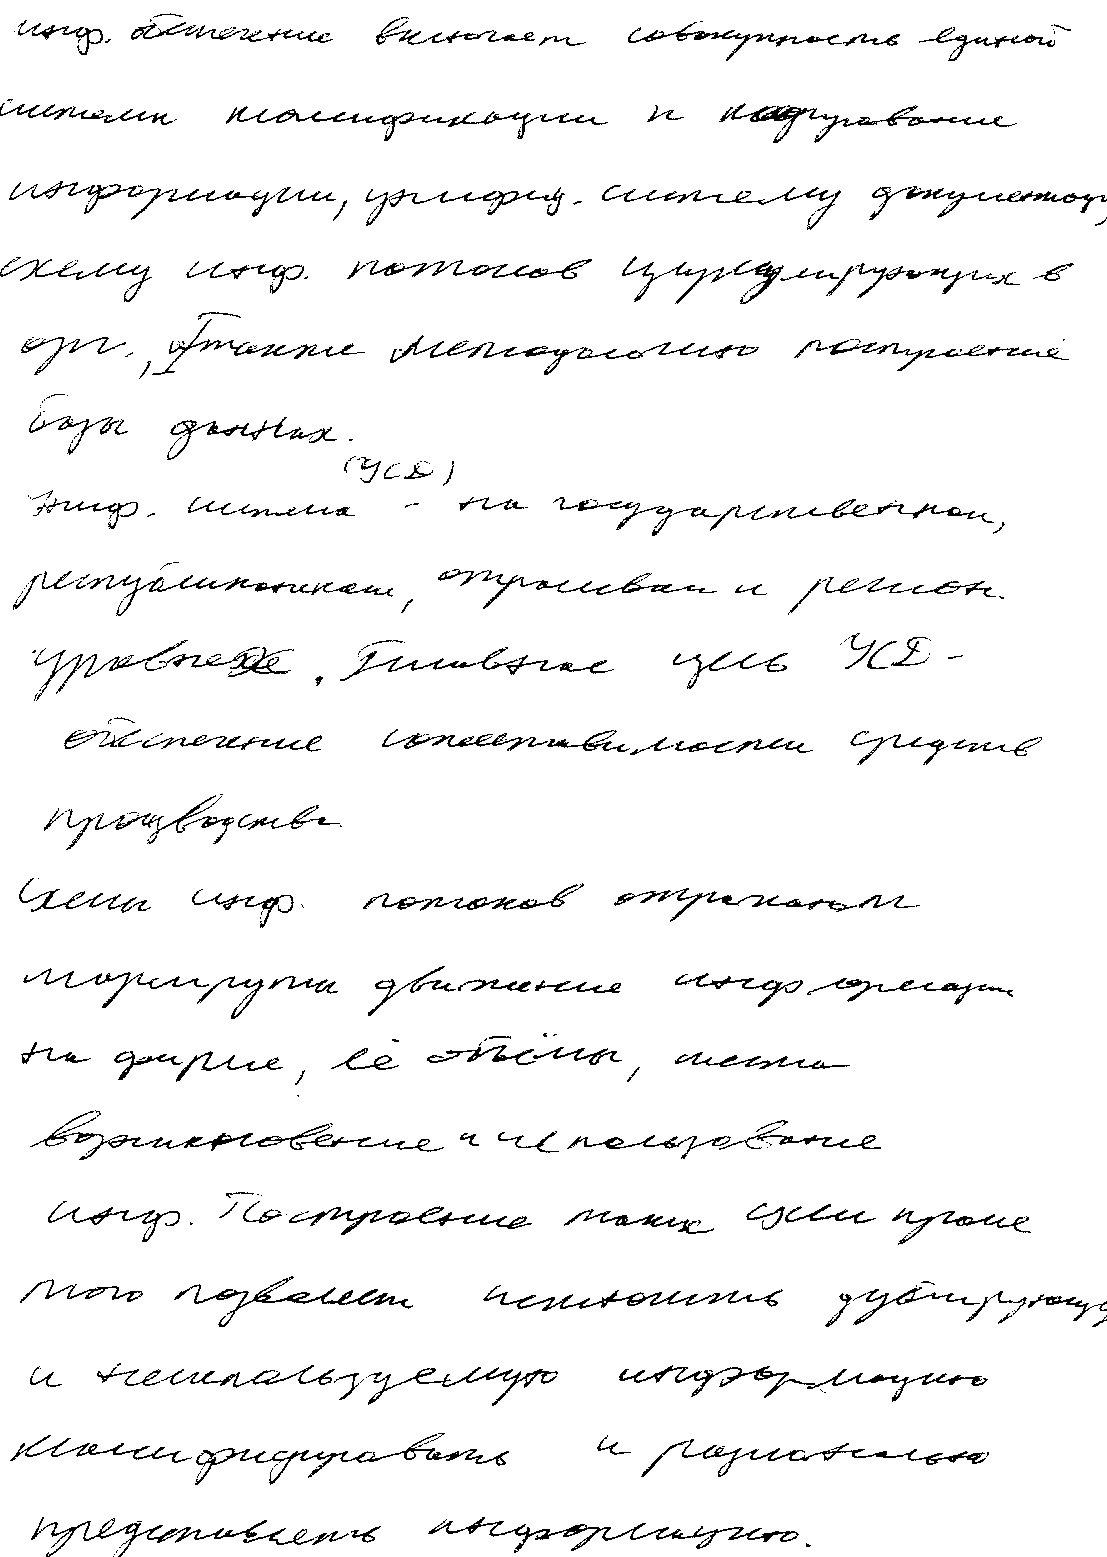 инф. обеспечение включает совокупность единой
системы классификации и кодирование
информации, унифиц. систему документации,
схему инф. потоков циркулирующих в
орг., а также методологию построение
базы данных.
(УСД)
Униф. система - на государственном,
республиканском, отраслевом и регион.
уровне. Главное цель УСД -
обеспечение сопоставимости средств
производства
Схемы инф. потоков отражают
маршруты движение информации
на фирме, её объёмы, места
возникновение и использование
инф. Построение таких схем кроме
того позволяет исключить дублирующую
и неиспользуемую информацию
классифицировать и рационально
представлять информацию.